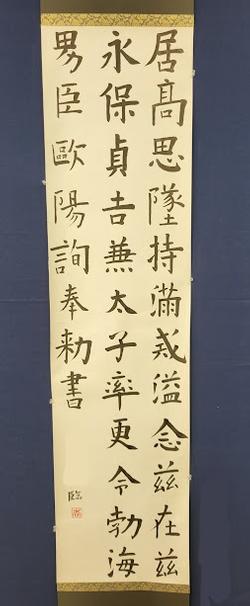 居高思墜持滿戒溢念茲在茲
永保貞吉兼太子率更令勃海
男臣歐陽詢奉勑書
臨